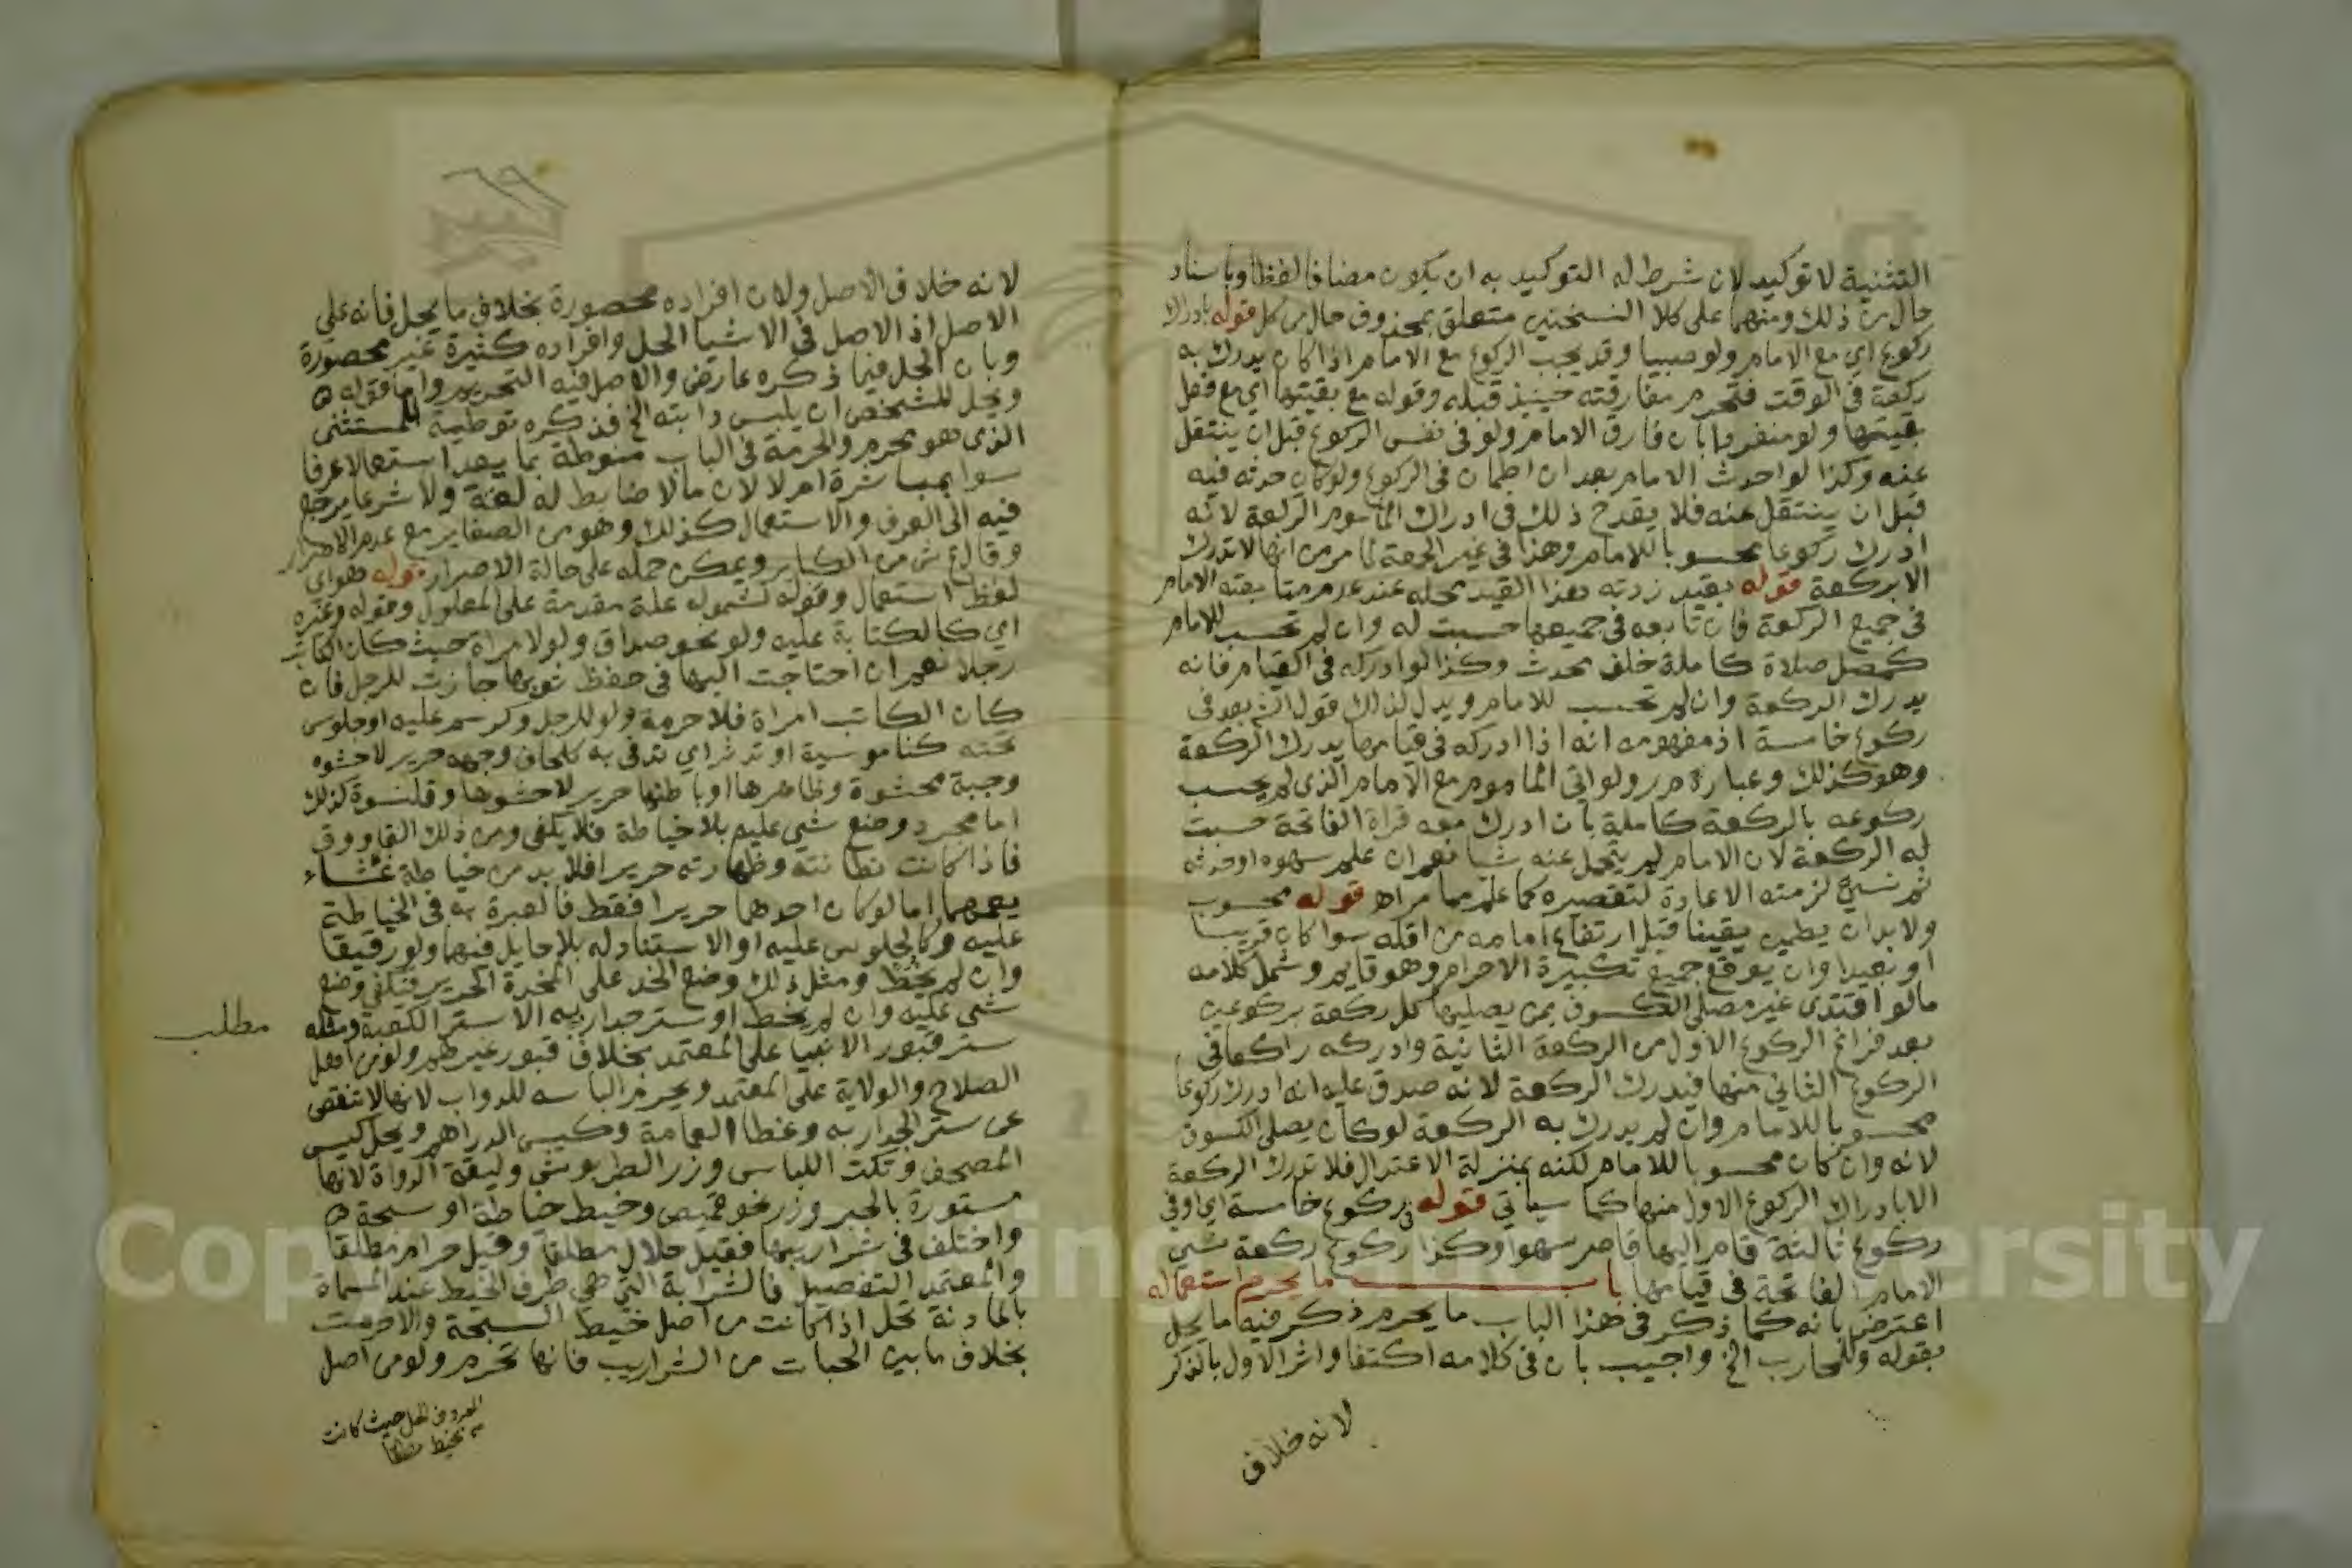 التثنية لا توكيد لان شرط له التوكيد به ان يكون مضافا لفظا وباسناد
حال من ذلك ومنهما على كلا النسختين متعلق بمحذوف حال من كل قوله بادراك
ركوع اي مع الامام ولو صبيا وقد يجب الركوع مع الامام اذا كان يدرك به
ركعة في الوقت فتحرم مفارقته حينيذ قبله وقوله مع بقيتها اي مع فعل
بقيتها ولو منفردا بان فارق الامام ولو في نفس الركوع قبل ان ينتقل
عنه وكذا لو احدث الامام بعد ان اطمان في الركوع ولو كان حدثه فيه
قبل ان ينتقل عنه فلا يقدح ذلك في ادراك الماموم الركعة لانه
ادرك ركوعا محسوبا للامام وهذا في غير الجمعة لما مر من انها لا تدرك
الا بركعة قوله بقيد زدته هذا القيد محله عند عدم متابعته الامام
في جميع الركعة فان تابعه في جميعها حسبت له وان لم تحسب للامام
كمصل صلاة كاملة خلف محدث وكذا لو ادركه في القيام فانه
يدرك الركعة وان لم تحسب للامام ويدل لذلك قول الش بعد في
ركوع خامسة اذ مفهومه انه اذا ادركه في قيامها يدرك الركعة
وهو كذلك وعبارة م ر ولو اتى الماموم مع الامام الذي لم يحسب
ركوعه بالركعة كاملة بان ادرك معه قراة الفاتحة حسبت
له الركعة لان الامام لم يتحمل عنه شيا نعم ان علم سهوه او حدثه
ثم نسي لزمته الاعادة لتقصيره كما علم مما مر اه قوله محسوب
ولا بد ان يطمن يقينا قبل ارتفاع امامه من اقله سوا كان قريبا
او بعيدا وان يوقع جميع تكبيرة الاحرام وهو قايم وشمل كلامه
ما لو اقتدى غير مصلي الكسوف بمن يصليها كل ركعة بركوعين
بعد فراغ الركوع الاول من الركعة الثانية وادركه راكعا في
الركوع الثاني منها فيدرك الركعة لانه صدق عليه انه ادرك ركوعا
محسوبا للامام وان لم يدرك به الركعة لو كان يصلي الكسوف
لانه وان كان محسوبا للامام لكنه بمنزلة الاعتدال فلا تدرك الركعة
الا بادراك الركوع الاول منها كما سياتي قوله في ركوع خامسة اي او في
ركوع ثالثة قام اليها قاصر سهوا وكذا ركوع ركعة نسي
الامام الفاتحة في قيامها باب ما يحرم استعماله
اعترض بانه كما ذكر في هذا الباب ما يحرم ذكر فيه ما يحل
بقوله وللمحارب الخ واجيب بان في كلامه اكتفا واثر الاول بالذكر
لانه خلاف
لانه خلاف الاصل ولان افراده محصورة بخلاف ما يحل فانه على
الاصل اذ الاصل في الاشيا الحل وافراده كثيرة غير محصورة
وبان الحل فيما ذكره عارض والاصل فيه التحريم واما قوله
ويحل للشخص ان يلبس دابته الخ فذكره توطية للمستثنى
الذي هو محرم والحرمة في الباب منوطة بما يعد استعمالا عرفا
سوا بمباشرة ام لا لان ما لا ضابط له لغة ولا شرعا يرجع
فيه الى العرف والاستعمال كذلك وهو من الصغاير مع عدم الاصرار
وقال ع ش من الكباير ويمكن حمله على حالة الاصرار قوله هو اي
لفظ استعمال وقوله لشموله علة مقدمة على المعلول وقوله وغيره
اي كالكتابة عليه ولو نحو صداق ولو لامراة حيث كان الكاتب
رجلا نعم ان احتاجت اليها في حفظ نحوها جازت للرجل فان
كان الكاتب امراة فلا حرمة ولو للرجل وكرسم عليه او جلوس
تحته كناموسية او تدثر اي تدفي به كلحاف وجهه حرير لا حشوه
وجبة محشوة وظاهرها او باطنها حرير لا حشوها وقلنسوة كذلك
اما مجرد وضع شي عليه بلا خياطة فلا يكفي ومن ذلك القاووق
فاذا كانت بطانته وظهارته حريرا فلا بد من خياطة غشاء
يعمهما اما لو كان احدهما حريرا فقط فالعبرة به في الخياطة
عليه وكالجلوس عليه او الاستناد له بلا حايل فيهما ولو رقيقا
وان لم يخط ومثل ذلك وضع الخد على المخدة الحرير فيكفي وضع
شي عليه وان لم يخط او ستر جدار به الا ستر الكعبة ومثله
مطلب
ستر قبور الانبيا على المعتمد بخلاف قبور غيرهم ولو من اهل
الصلاح والولاية على المعتمد ويحرم الباسه للدواب لانها لا تنقص
عن ستر الجدار به وغطا العمامة وكيس الدراهم ويحل كيس
المصحف وتكت اللباس وزر الطربوش وليقة الدواة لانها
مستورة بالحبر وزر نحو قميص وخيط خياطة او سبحة
واختلف في شراريبها فقيل حلال مطلقا وقيل حرام مطلقا
والمعتمد التفصيل فالشرابة التي هي طرف الخيط عند المسماة
بالمادنة تحل اذا كانت من اصل خيط السبحة والا حرمت
بخلاف ما بين الحبات من الشراريب فانها تحرم ولو من اصل